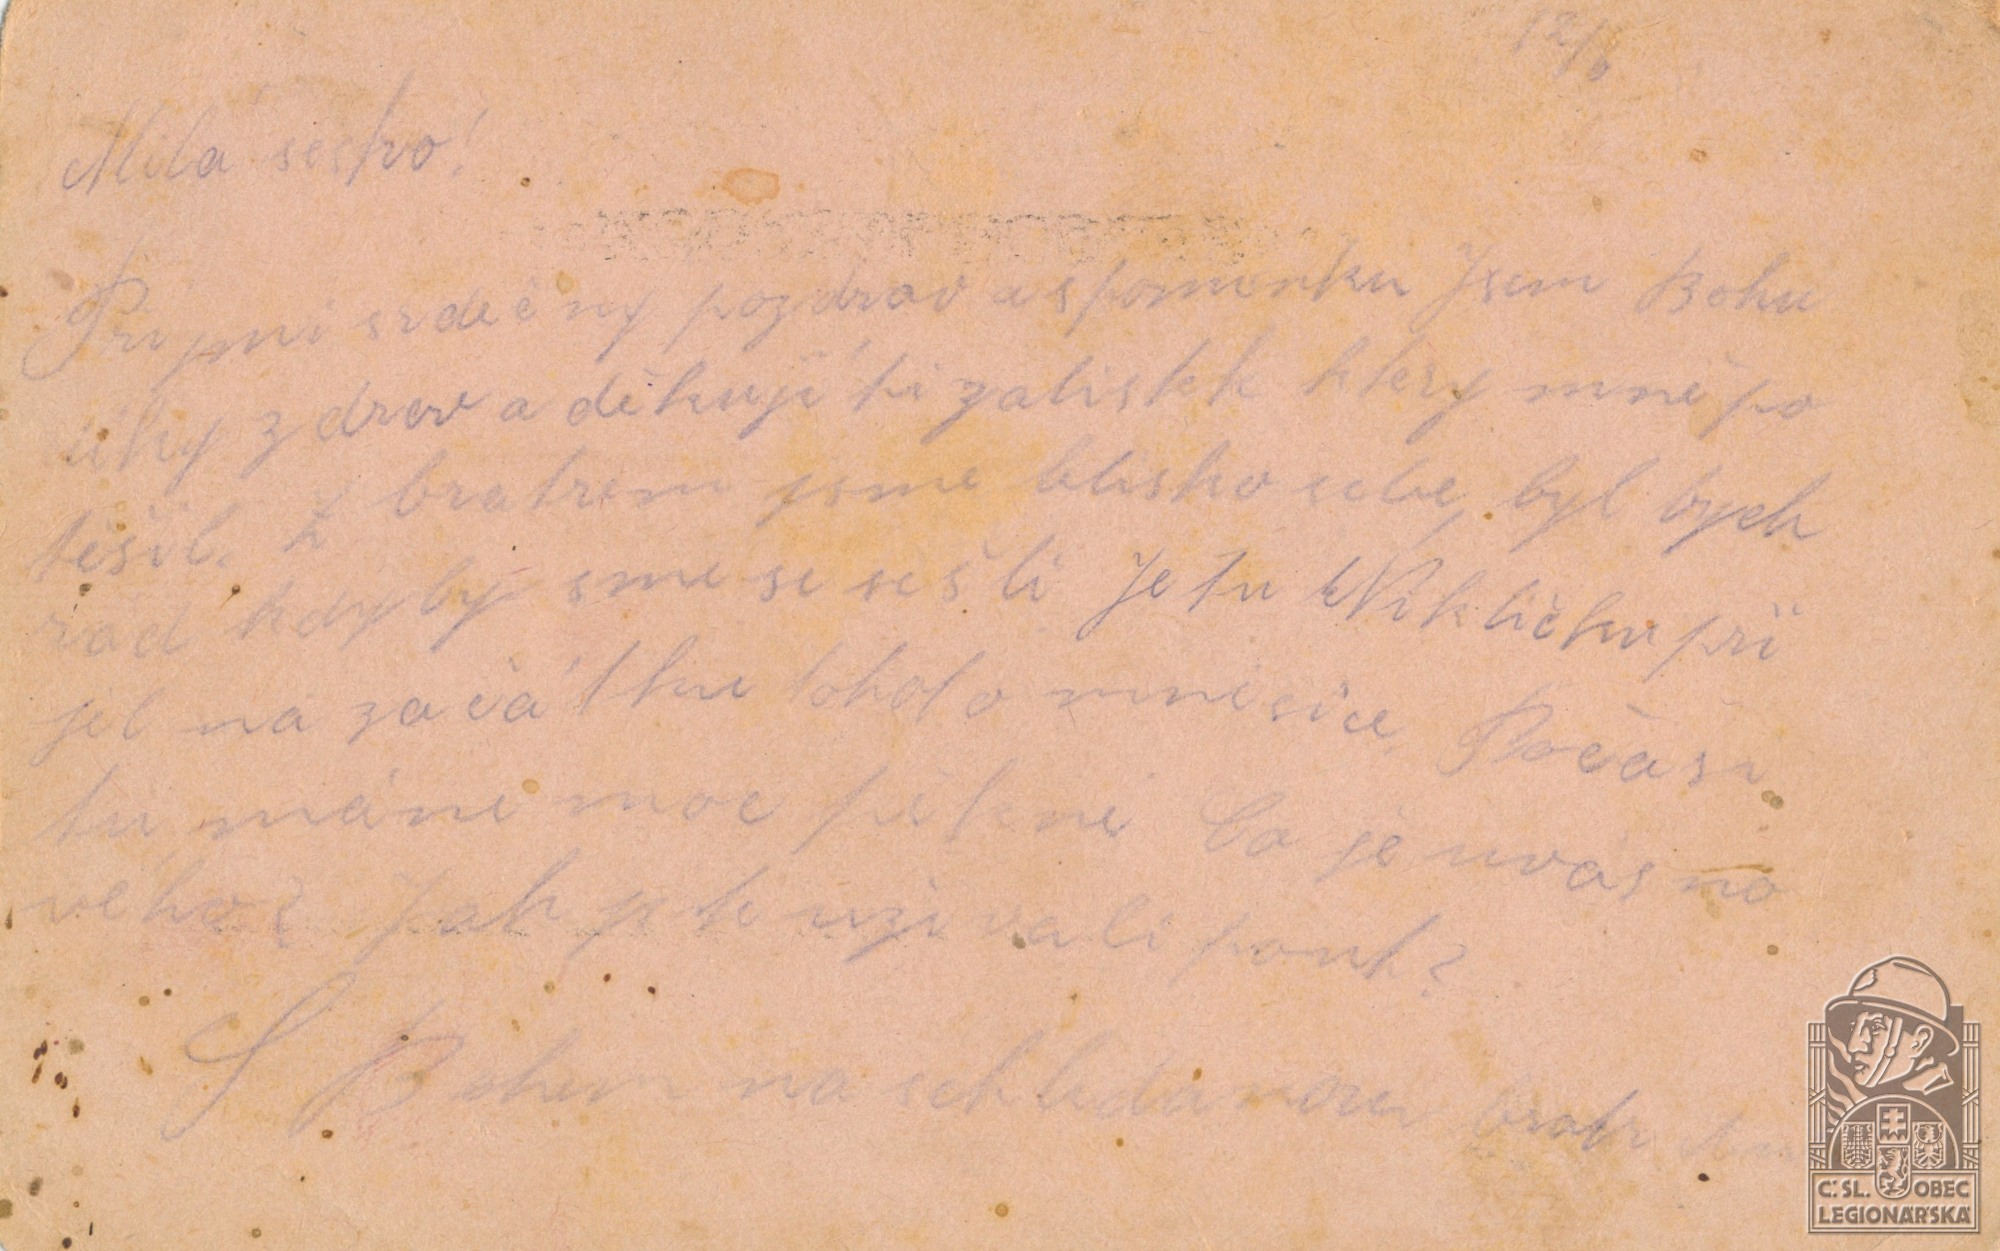 12/6
Milá sestro!
Prijmi srdečny pozdrav a spomenku Jsem Bohu
diky zdrav a děkuji ti zalistek ktery mně po
těšil. Z bratrem jsme blisko sebe, byl bych
rad kdyby sme se sešli Je tu Nikličku při
jel na začátku tohoto mnesice. Počasi
tu máme moc pěkne Co je uvas no
veho? Jak jste uživali pout?
S Bohem na schledanou bratr
Č. SL. OBEC
LEGIONÁŘSKÁ